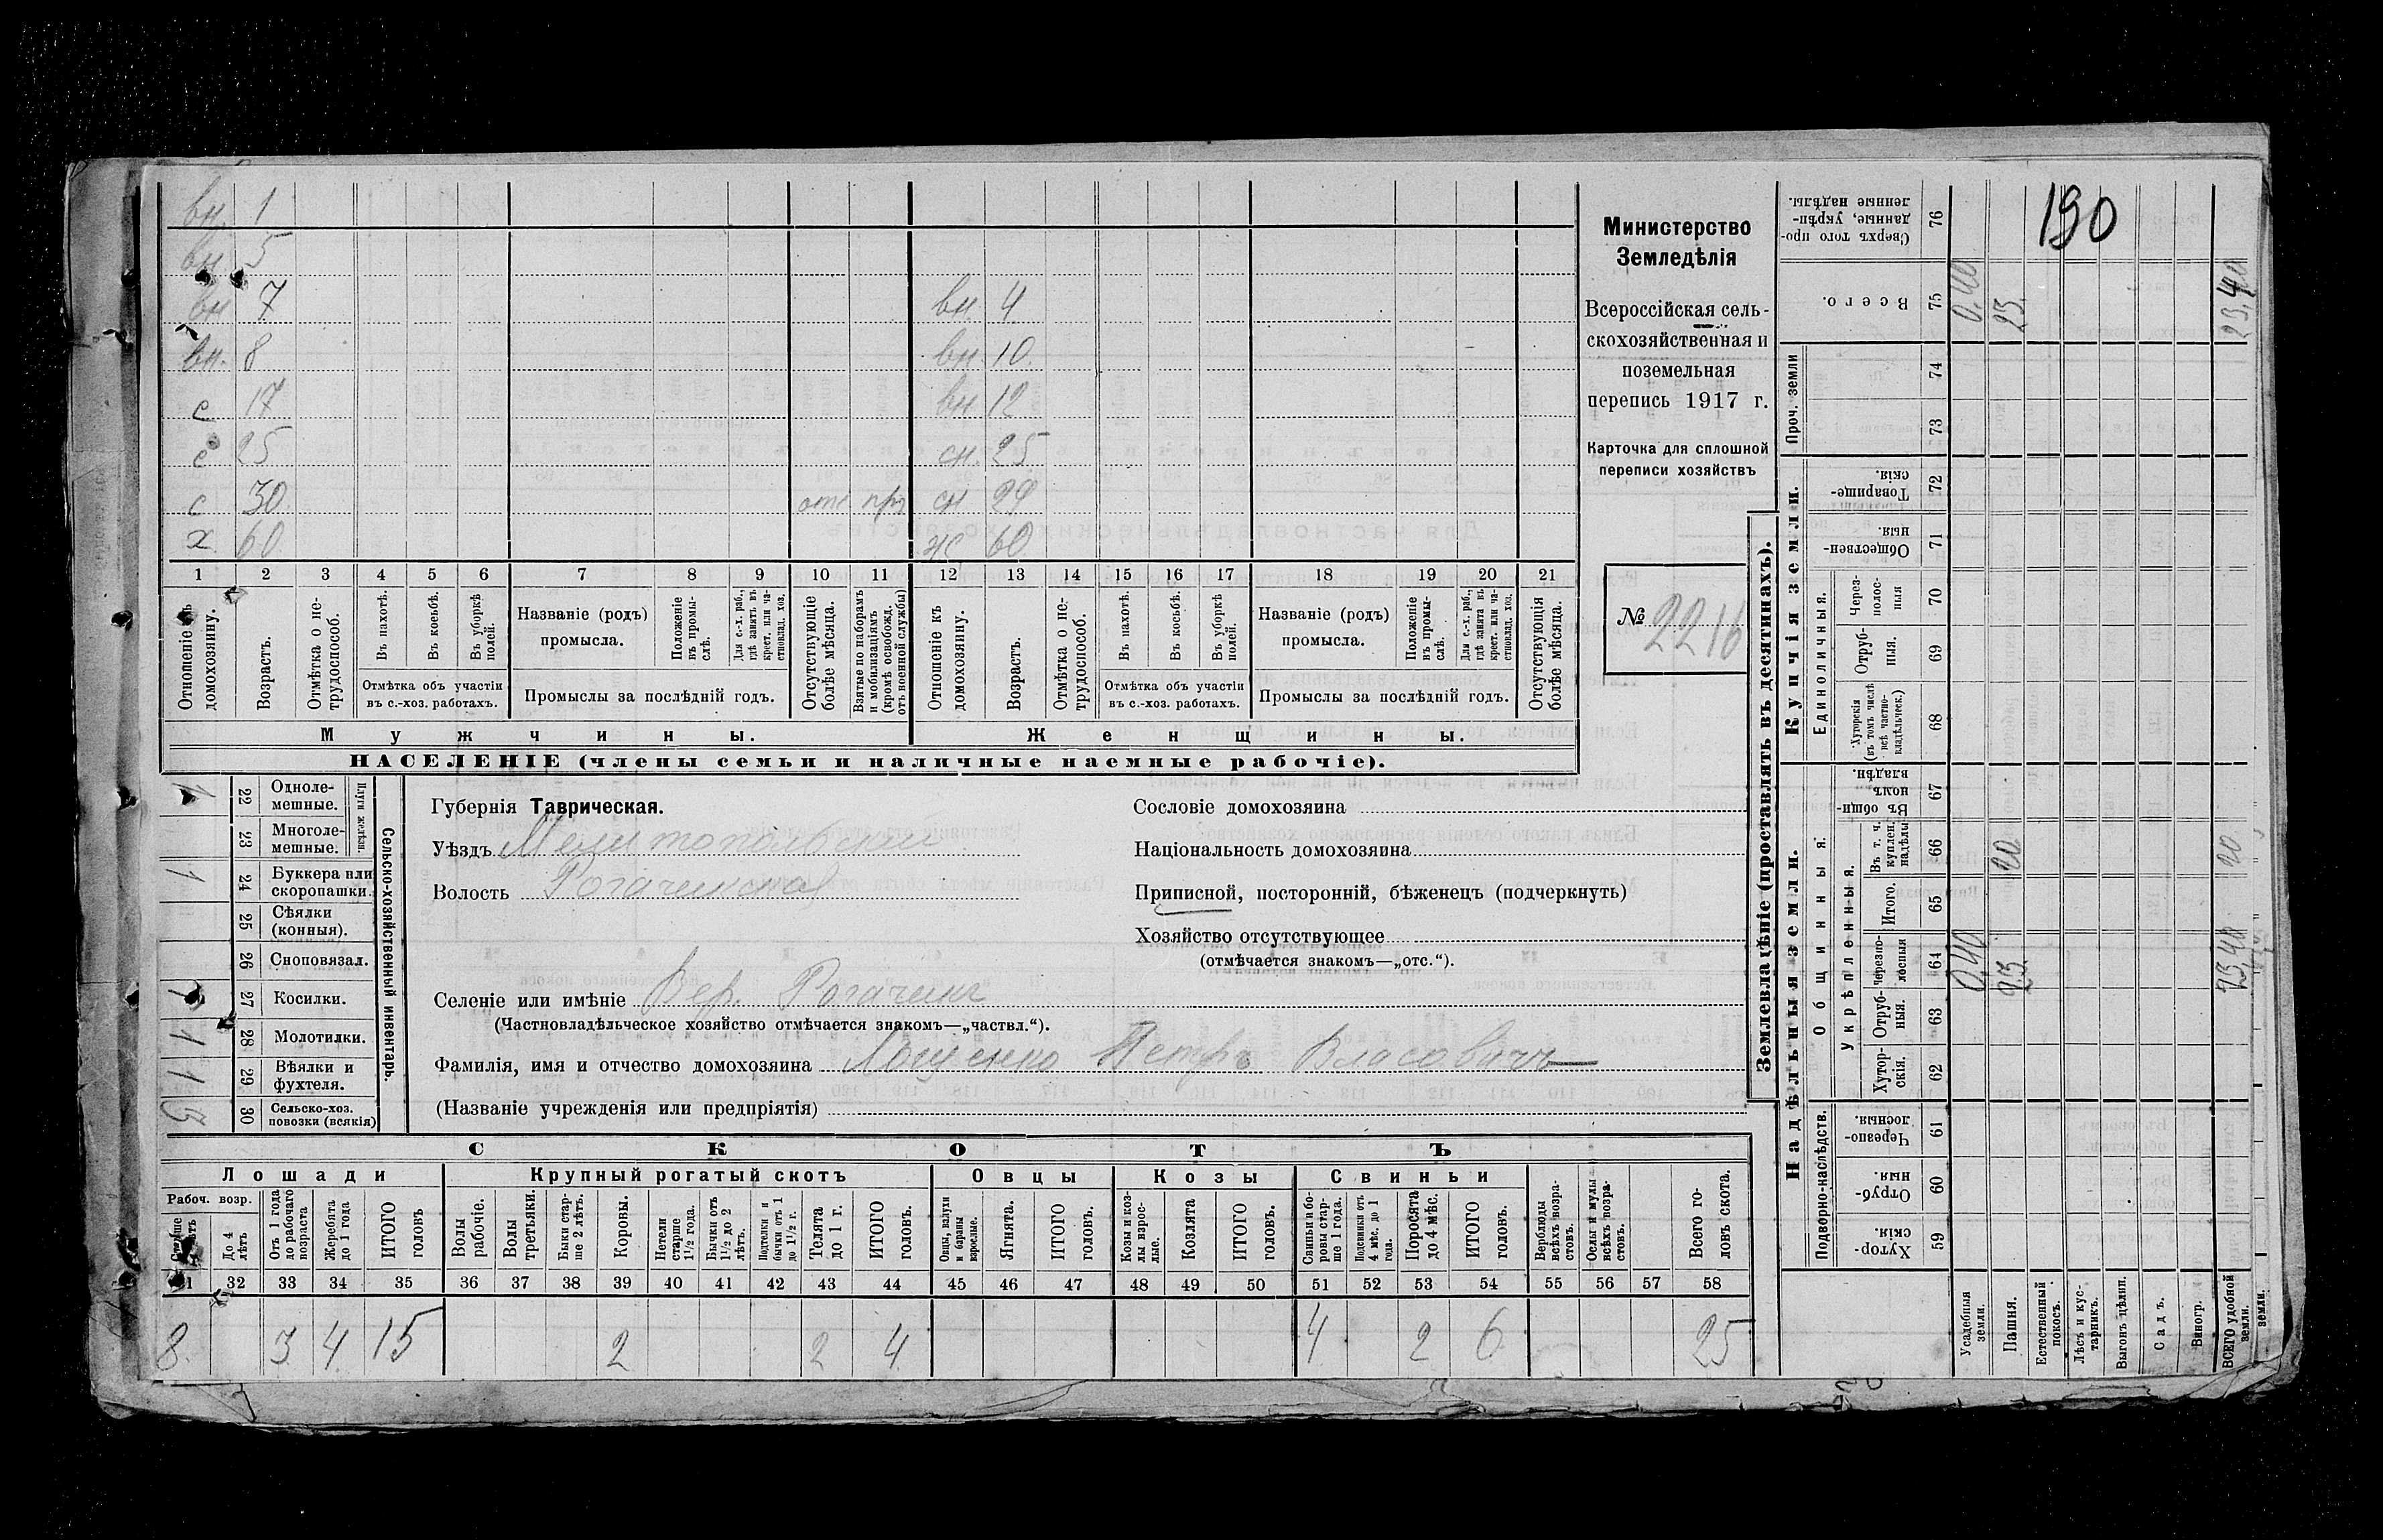 вн. 1
вн 5
вн 7 вн. 4
вн. 8 вн. 10.
с 17 вн 12
с 25 сн. 25
с 30. отс пр сн. 29
х 60 ж 60
1 2 3 4 5 6 7 8 9 10 11 12 13 14 15 16 17 18 19 20 21
Отношеніе къ домохозяину.
Возрастъ.
Отмѣтка о не-
трудоспособ.
Въ пахотѣ.
Въ косьбѣ.
Въ уборкѣ
полей.
Отмѣтка объ участіи
въ с.-хоз. работахъ.
Названіе (родъ)
промысла.
Положеніе
въ промы-
слѣ.
Для с.-х. раб.,
гдѣ занятъ въ
крест. или ча-
стновлад. хоз.
Промыслы за послѣдній годъ.
Отсутствующіе
болѣе мѣсяца.
Взятые по наборамъ
и мобилизаціямъ
(кромѣ освобожд.
отъ военной службы)
Отношеніе къ
домохозяину.
Возрастъ.
Отмѣтка о не-
трудоспособ.
Въ пахотѣ.
Въ косьбѣ.
Въ уборкѣ
полей.
Отмѣтка объ участіи
въ с.-хоз. работахъ.
Названіе (родъ)
промысла.
Положеніе
въ промы-
слѣ.
Для с.-х. раб.,
гдѣ занята въ
крест. или ча-
стновлад. хоз.
Промыслы за послѣдній годъ.
Отсутствующія
болѣе мѣсяца.
Мужчины. Женщины.
НАСЕЛЕНІЕ (члены семьи и наличные наемные рабочіе).
Министерство
Земледѣлія
Всероссійская сель-
скохозяйственная и
поземельная
перепись 1917 г.
Карточка для сплошной
переписи хозяйствъ
№ 2216
Сельско-хозяйственный инвентарь.
Плуги желѣзн.
1 22 Одноле-
мешные.
23 Многоле-
мешные.
1 24 Буккера или
скоропашки.
25 Сѣялки
(конныя).
26 Сноповязал.
1 27 Косилки.
1 28 Молотилки.
1 29 Вѣялки и
фухтеля.
3 30 Сельско-хоз.
повозки (всякія)
Губернія Таврическая.
Уѣздъ Мелитопольскій
Волость Рогачинская
Сословіе домохозяина
Національность домохозяина
Приписной, посторонній, бѣженецъ (подчеркнуть)
Хозяйство отсутствующее
(отмѣчается знакомъ—„отс.“).
Селеніе или имѣніе Вер. Рогачикъ
(Частновладѣльческое хозяйство отмѣчается знакомъ—„частвл.“).
Фамилія, имя и отчество домохозяина Лощенко Петръ Власовичъ
(Названіе учрежденія или предпріятія)
СКОТЪ
Лошади Крупный рогатый скотъ Овцы Козы Свиньи
Рабоч. возр.
До 4
лѣтъ
Отъ 1 года
до рабочаго
возраста
Жеребята
до 1 года
ИТОГО
головъ
Волы
рабочіе.
Волы
третьяки.
Быки стар-
ше 2 лѣтъ.
Коровы.
Нетели
старше
1½ года.
Бычки отъ
1½ до 2
лѣтъ.
Подтелки и
бычки отъ 1
до 1½ г.
Телята
до 1 г.
ИТОГО
головъ.
Овцы, валухи
и бараны
взрослые.
Ягнята.
ИТОГО
головъ.
Козы и коз-
лы взрос-
лые.
Козлята
ИТОГО
головъ.
Свиньи и бо-
ровы стар-
ше 1 года.
Подсвинки отъ
4 мѣс. до 1
года.
Поросята
до 4 мѣс.
ИТОГО
головъ.
Верблюды
всѣхъ возра-
стовъ.
Ослы и мулы
всѣхъ возра-
стовъ.
Всего го-
ловъ скота.
31 32 33 34 35 36 37 38 39 40 41 42 43 44 45 46 47 48 49 50 51 52 53 54 55 56 57 58
8. 3 4 15 2 2 4 4 2 6 25
190
Землевладѣніе (проставлять въ десятинахъ).
Купчія земли.
Надѣльныя земли.
Сверхъ того про-
данные, укрѣп-
ленные надѣлы. 76
Всего. 75 0.40 23. 23,40
Проч. земли
74
73
Товарище-
скія. 72
Обществен-
ныя. 71
Единоличныя.
Через-
полос-
ныя 70
Отруб-
ныя. 69
Хуторскія
(въ томъ числѣ
всѣ частно-
владѣльческ.) 68
Общинныя:
Въ общин-
номъ
владѣн. 67
Укрѣпленныя.
Въ т. ч.
куплен.
надѣлы 66 20 20
Итого. 65
Черезпо-
лосныя 64 0,40 23. 23,40
Отруб-
ныя. 63
Хутор-
скія. 62
Подворно-наслѣдств.
Черезпо-
лосныя. 61
Отруб-
ныя. 60
Хутор-
скія. 59
Усадебныя
земли.
Пашня.
Естественный
покосъ.
Лѣсъ и кус-
тарникъ.
Выгонъ цѣлин.
Садъ.
Виногр.
ВСЕГО удобной
земли.
земли.